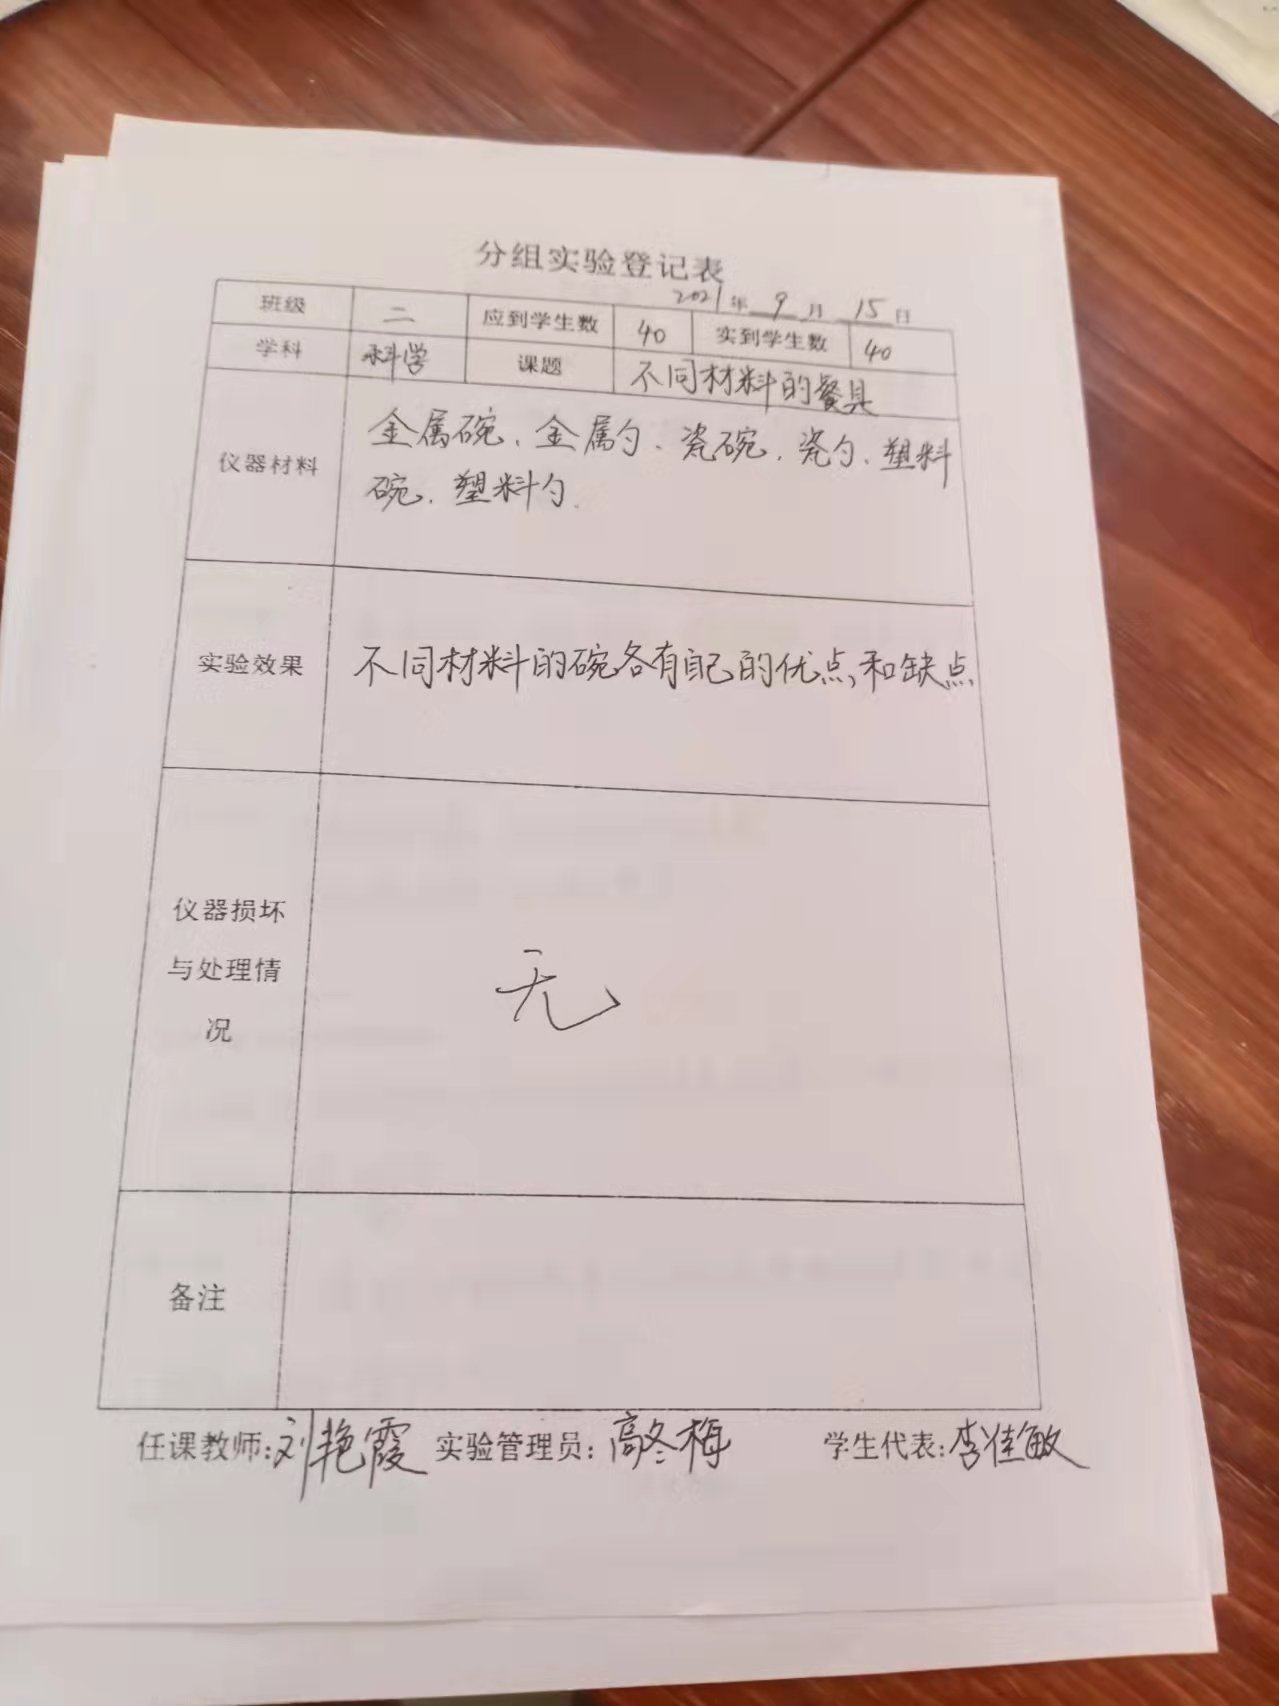 分组实验登记表
2021年 9 月 15 日
班级 二 应到学生数 40 实到学生数 40
学科 科学 课题 不同材料的餐具
仪器材料 金属碗、金属勺、瓷碗、瓷勺、塑料
碗、塑料勺.
实验效果 不同材料的碗各有自己的优点,和缺点
仪器损坏
与处理情
况
无
备注
任课教师:刘艳霞 实验管理员:高冬梅 学生代表:李佳敏